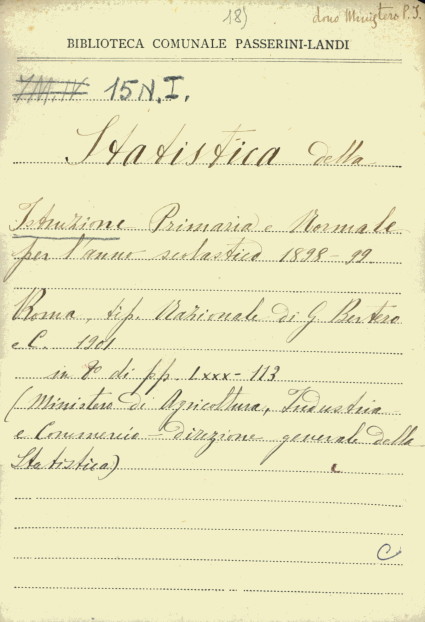 18) dono Ministero P. I.
BIBLIOTECA COMUNALE PASSERINI-LANDI
15 N. I.
Statistica della
Istruzione Primaria e Normale
per l'anno scolastico 1898-99.
Roma, tip. Nazionale di G. Bertero
e C. 1901
in 8º di pp. LXXX-113
(Ministero di Agricoltura, Industria
e Commercio - direzione generale della
Statistica)
C